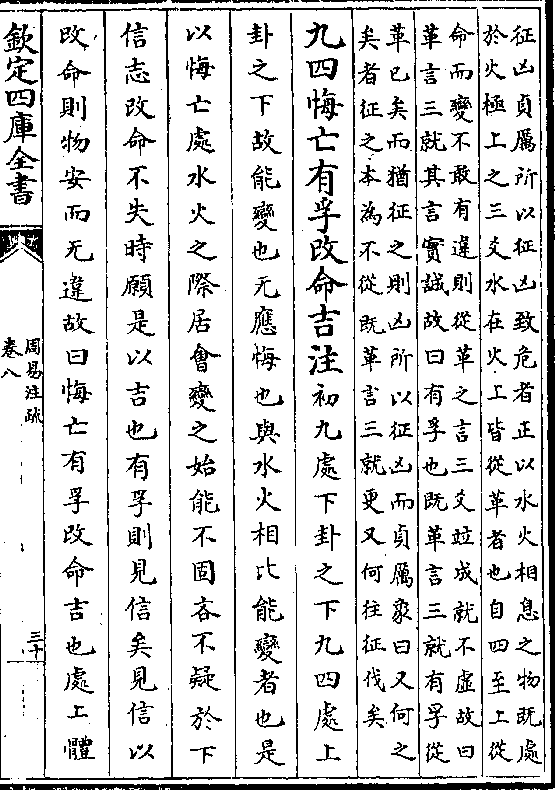 征凶貞厲所以征凶致危者正以水火相息之物既處
於火極上之三爻水在火上皆從革者也自四至上從
命而變不敢有違則從革之言三爻竝成就不虛故曰
革言三就其言實誠故曰有孚也既革言三就有孚從
革已矣而猶征之則凶所以征凶而貞厲象曰又何之
矣者征之本為不從既革言三就更又何往征伐矣
九四悔亡有孚改命吉注初九處下卦之下九四處上
卦之下故能變也无應悔也與水火相比能變者也是
以悔亡處水火之際居會變之始能不固吝不疑於下
信志改命不失時願是以吉也有孚則見信矣見信以
改命則物安而无違故曰悔亡有孚改命吉也處上體
欽定四庫全書
周易注疏
卷八
三十